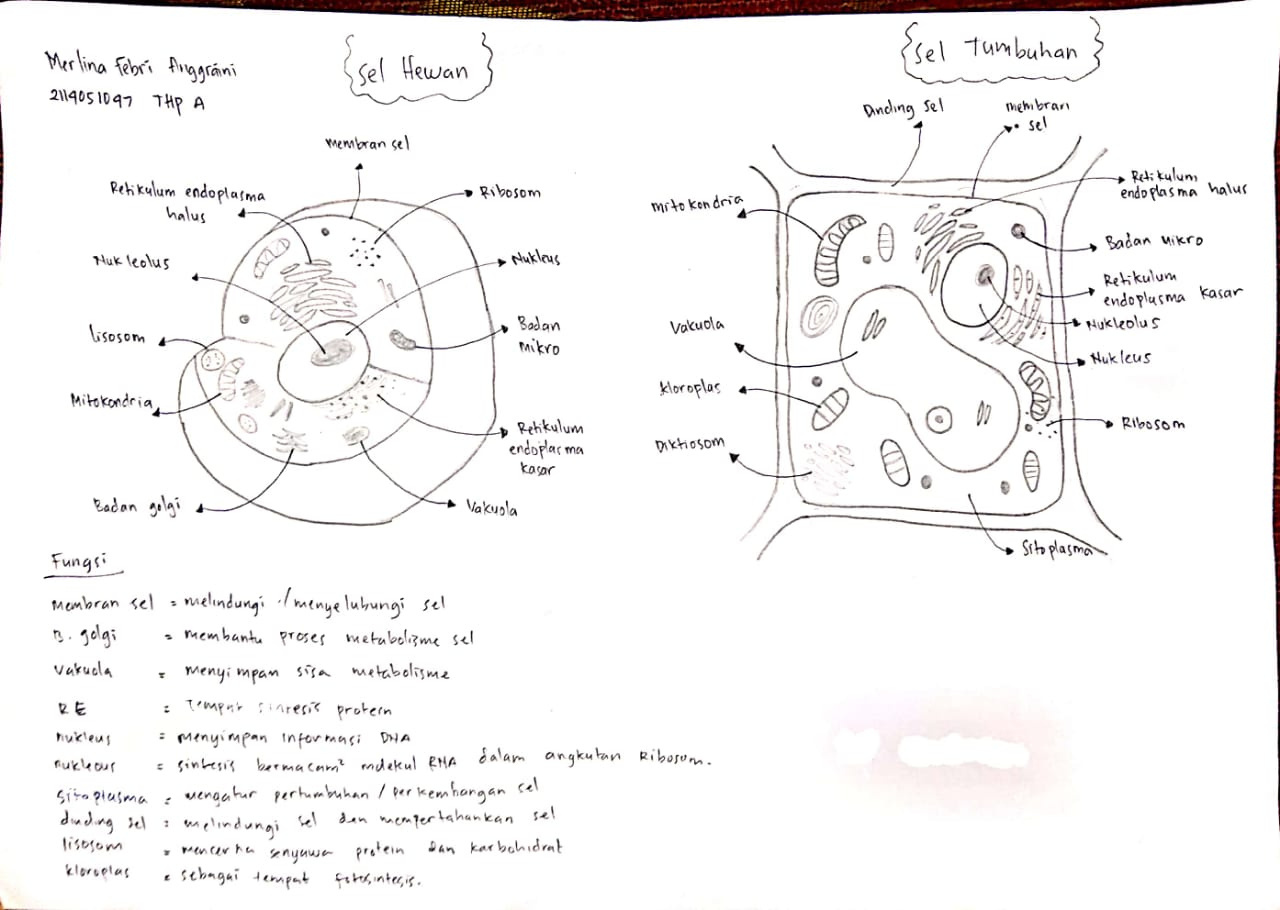 Merlina Febri Anggraini
2114051047 THP A
Sel Hewan
membran sel
Retikulum endoplasma
halus
Ribosom
Nukleolus
Nukleus
lisosom
Badan
Mikro
Mitokondria
Retikulum
endoplasma
kasar
Badan golgi
Vakuola
Sel Tumbuhan
Dinding sel
membran
sel
mitokondria
Retikulum
endoplasma halus
Badan Mikro
Retikulum
endoplasma kasar
Nukleolus
Vakuola
Nukleus
kloroplas
Ribosom
Diktiosom
Sitoplasma
Fungsi
Membran sel = melindungi /menyelubungi sel
B. golgi = membantu proses metabolisme sel
Vakuola = menyimpan sisa metabolisme
RE = Tempat sintesis protein
nukleus = menyimpan informasi DNA
nukleous = sintesis bermacam² molekul RNA dalam angkutan Ribosom.
Sitoplasma = mengatur pertumbuhan / perkembangan sel
dinding sel = melindungi sel dan mempertahankan sel
lisosom = mencerna senyawa protein dan karbohidrat
kloroplas = sebagai tempat fotosintesis.